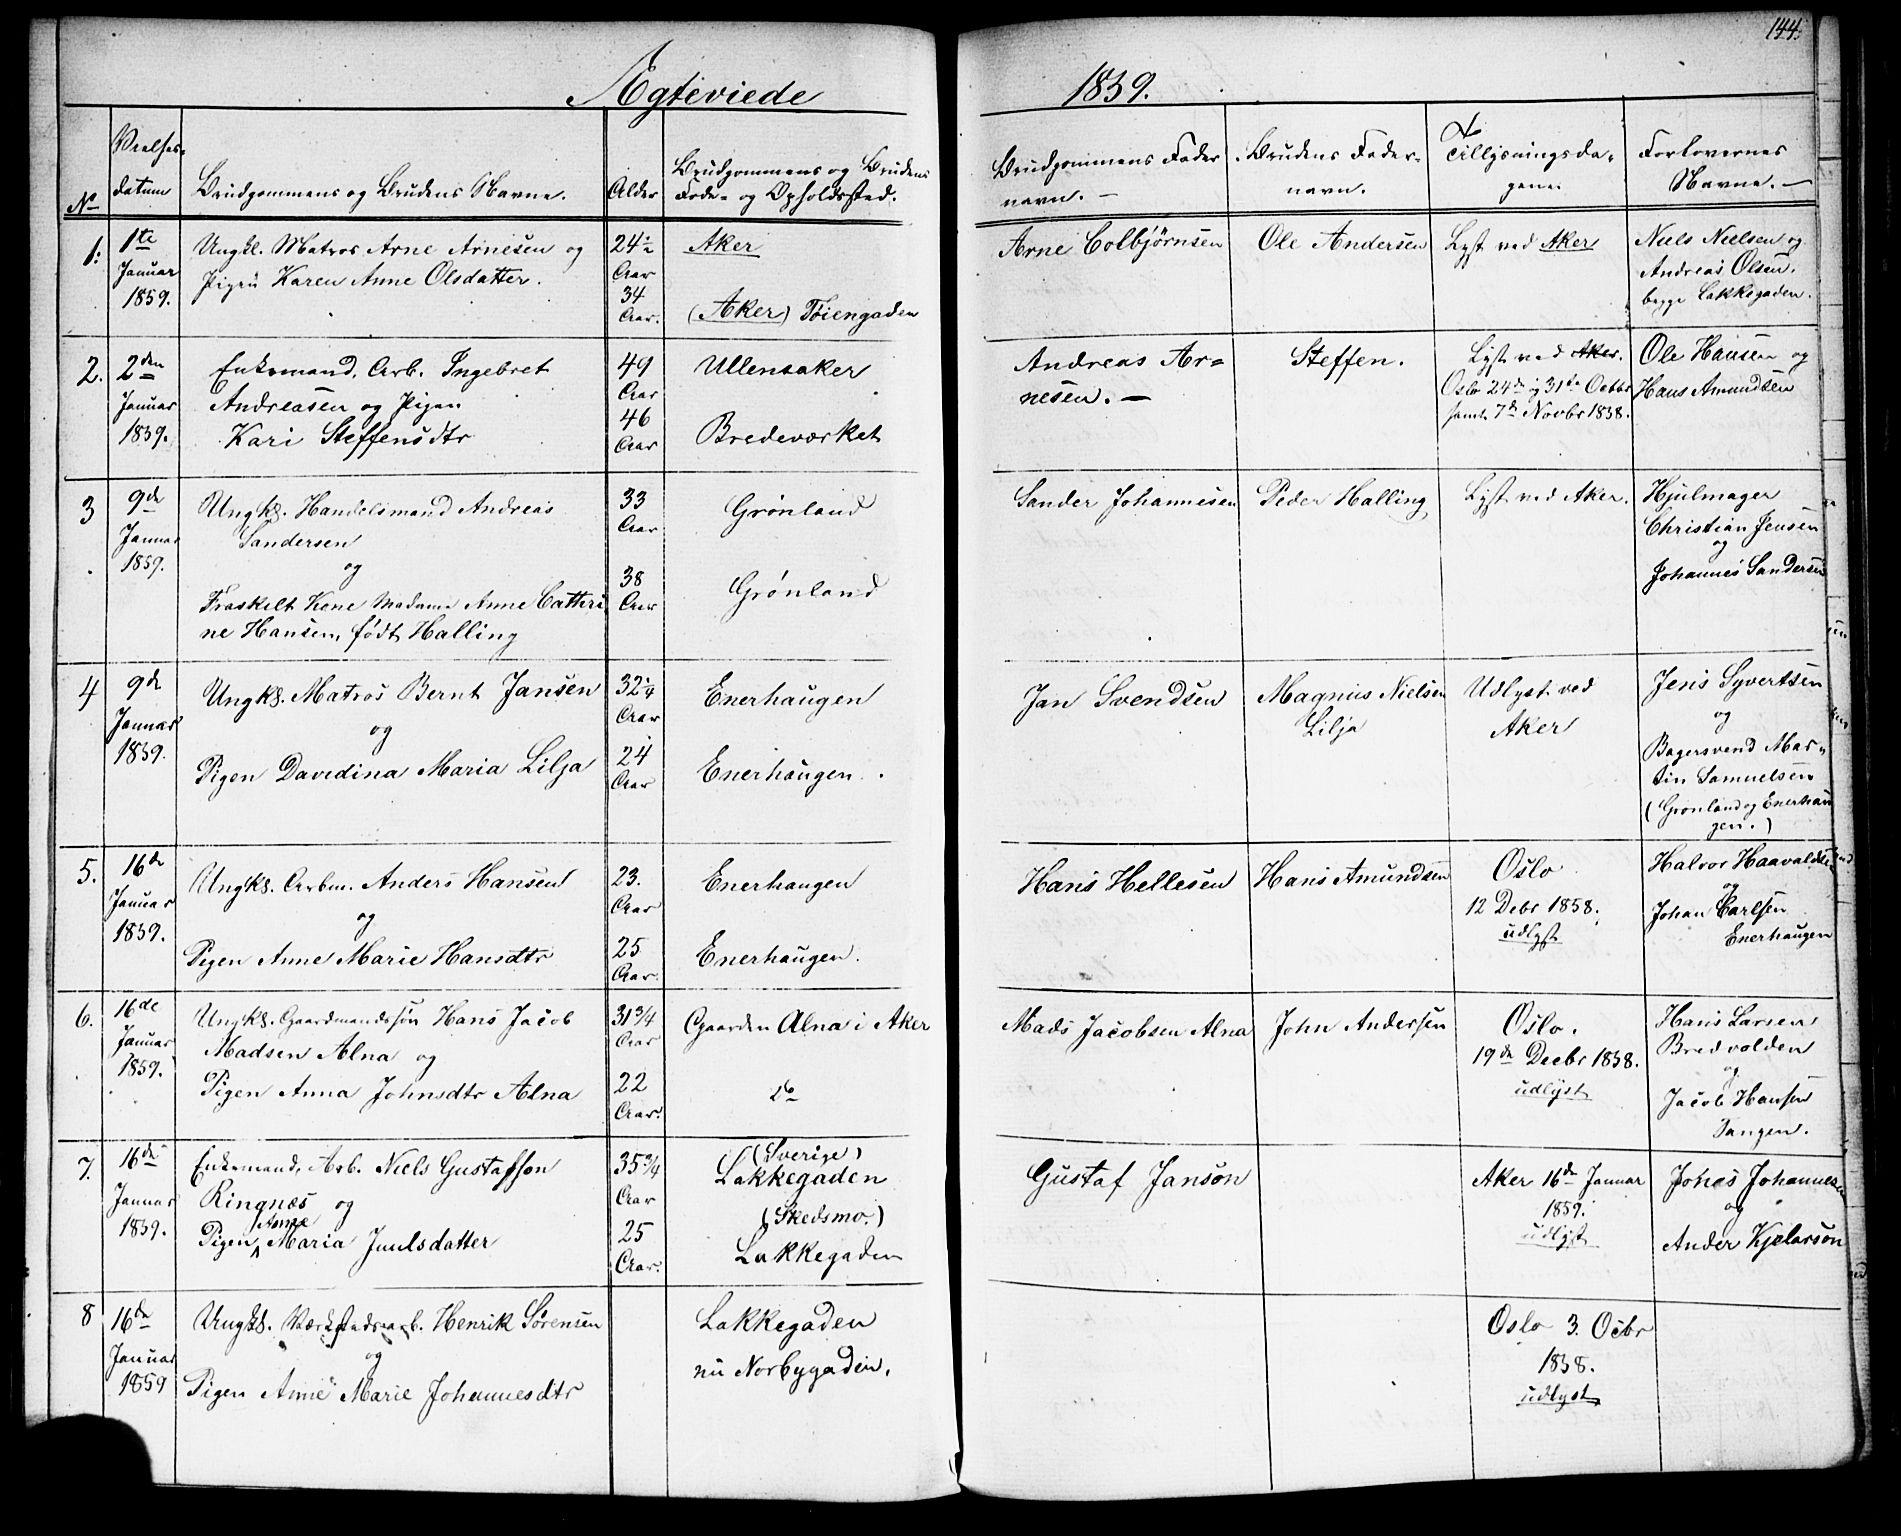 144.
Ægteviede 1859.
No
Vielses-
datum
Brudgommens og Brudens Navne.
Alder
Brudgommens og Brudens
Føde- og Opholdssted.
Brudgommens Fader
navn. —
Brudens Fader-
navn.
Tillysningsda-
gene.
Forlovernes
Navne. —
1.
1te
Januar
1859.
Ungkl. Matros Arne Arnesen og
Pigen Karen Anne Olsdatter.
24
Aar
34
Aar.
Aker
(Aker) Tøiengaden
Arne Colbjørnsen
Ole Andersen
Lyst ved Aker
Niels Nielsen og
Andreas Olsen,
begge Lakkegaden.
2.
2den
Januar
1859.
Enkemand, Arb. Ingebret
Andreasen og Pigen
Kari Steffensdtr
49
Aar
46
Aar
Ullensaker
Bredeværket
Andreas Ar=
nesen. —
Steffen.
Lyst ved Aker.
Oslo 24de og 31te Octbr
samt 7de Novbr 1858.
Ole Hansen og
Hans Amundsen
3
9de
Januar
1859.
Ungks. Handelsmand Andreas
Sandersen
og
Fraskilt Kone Madame Anne Cathri
ne Hansen, født Halling
33
Aar
38
Aar
Grønland
Grønland
Sander Johannesen
Peder Halling
Lyst ved Aker.
Hjulmager
Christian Jensen
og
Johannes Sandersen
4
9de
Januar
1859.
Ungks. Matros Bernt Jansen
og
Pigen Davidina Maria Lilja
32 1/4
Aar
24
Aar
Enerhaugen
Enerhaugen.
Jan Svendsen
Magnus Nielsen
Lilja
Udlyst ved
Aker
Jens Syvertsen
og
Bagersvend Mar-
tin Samuelsen
(Grønland og Enerhau
gen.)
5.
16de
Januar
1859.
Ungks. Arbm. Anders Hansen
og
Pigen Anne Marie Hansdtr
23.
Aar
25
Aar.
Enerhaugen
Enerhaugen.
Hans Hellesen
Hans Amundsen
Oslo
12 Debr 1858.
udlyst
Halvor Haavaldsen
og
Johan Carlsen
Enerhaugen
6.
16de
Januar
1859.
Ungks. Gaardmandssøn Hans Jacob
Madsen Alna og
Pigen Anna Johnsdtr Alna
31 3/4
Aar
22
Aar.
Gaarden Alna i Aker
do
Mads Jacobsen Alna
John Andersen
Oslo.
19de Decbr 1858.
udlyst
Hans Larsen
Bredvolden
og
Jacob Hansen
Tangen.
7.
16de
Januar
1859.
Enkemand, Arb. Niels Gustafson
Ringnæs og
Anne
Pigen Maria Juulsdatter
35 3/4
Aar
25
Aar.
(Sverige)
Lakkegaden
(Skedsmo.)
Lakkegaden
Gustaf Janson
Aker 16de Januar
1859.
udlyst
Johes Johannesen
og
Ander Kjelarson
8
16de
Januar
1859
Ungks. Værkstedsarb. Henrik Sørensen
og
Pigen Anne Marie Johannesdtr
Lakkegaden
nu Norbygaden.
Oslo 3. Octbr
1858.
udlyst